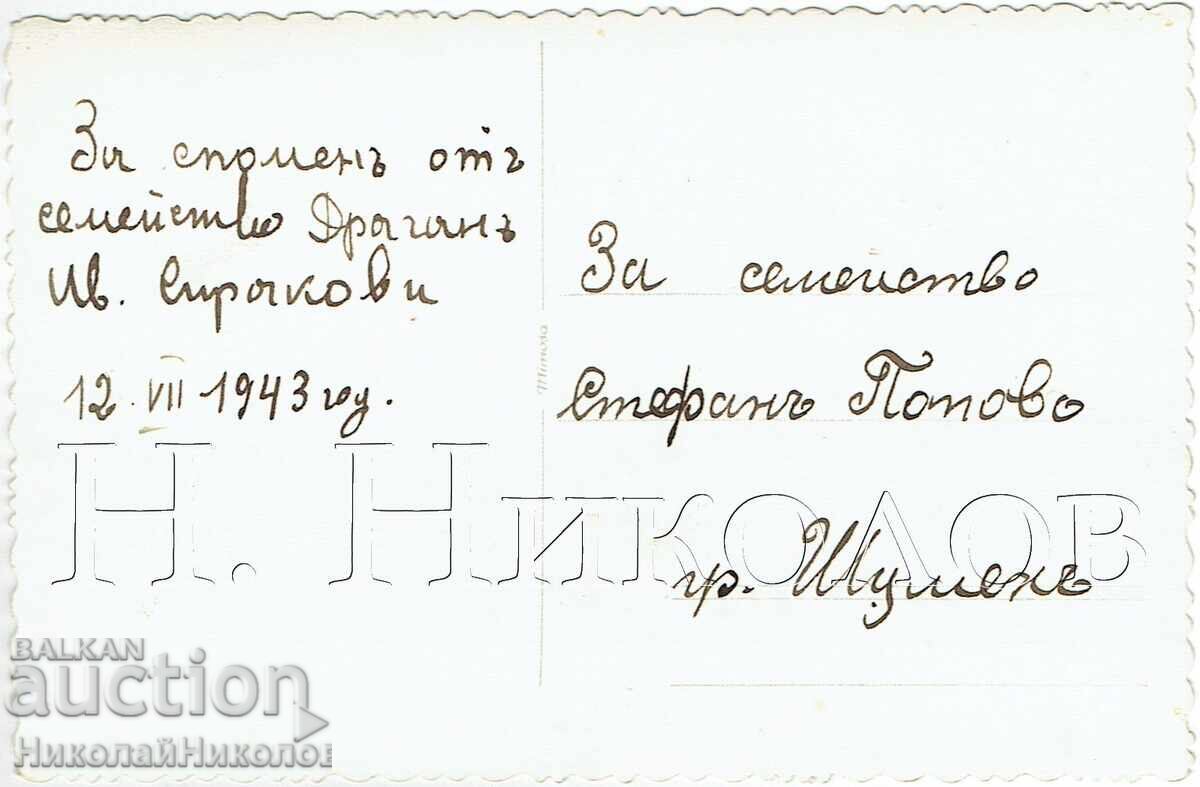 За споменъ отъ
семейство Драганъ
Ив.
12. VII 1943 год.
Mimosa
За семейство
Стефанъ Попово
гр. Шуменъ
Н. Николов
BALKAN
auction
НиколайНиколов